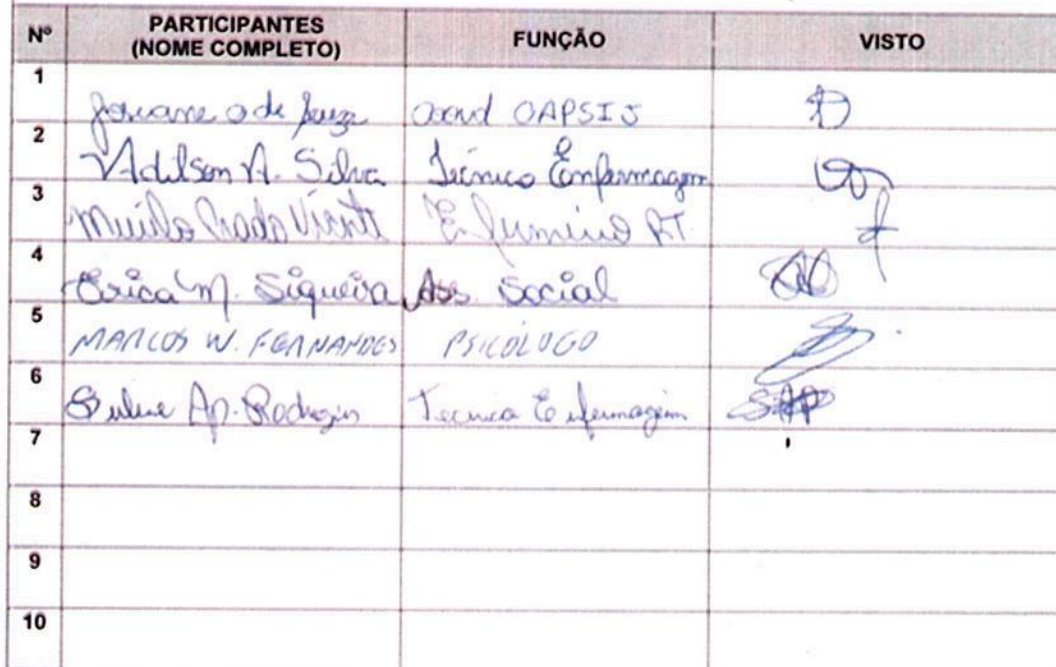 Nº PARTICIPANTES (NOME COMPLETO) FUNÇÃO VISTO
1 Josiane o de Souza Coord CAPSIJ
2 Adilson A. Silva Técnico Enfermagem
3 Murilo Prado Vicente Enfermeiro RT
4 Erica M. Siqueira Ass. Social
5 MARCOS W. FERNANDES PSICÓLOGO
6 Ap. Rodrigues Tecnica Enfermagem
7
8
9
10